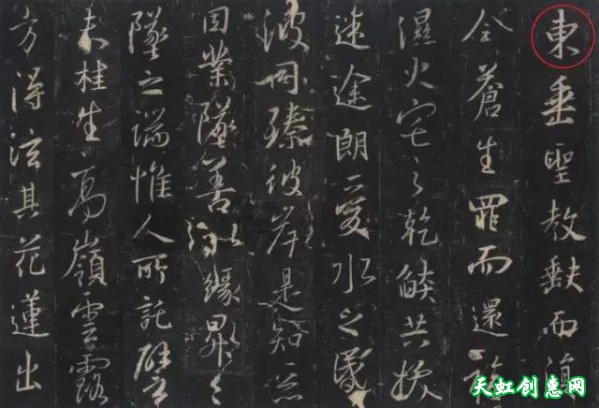 東垂聖教缺而復
全蒼生罪而還福
濕火宅之乾焰共拔
迷途朗愛水之昏
波同臻彼岸是知惡
因業墜善以緣昇々
墜之端惟人所託譬
夫桂生高嶺雲露
方得泫其花蓮出
天虹创惠网